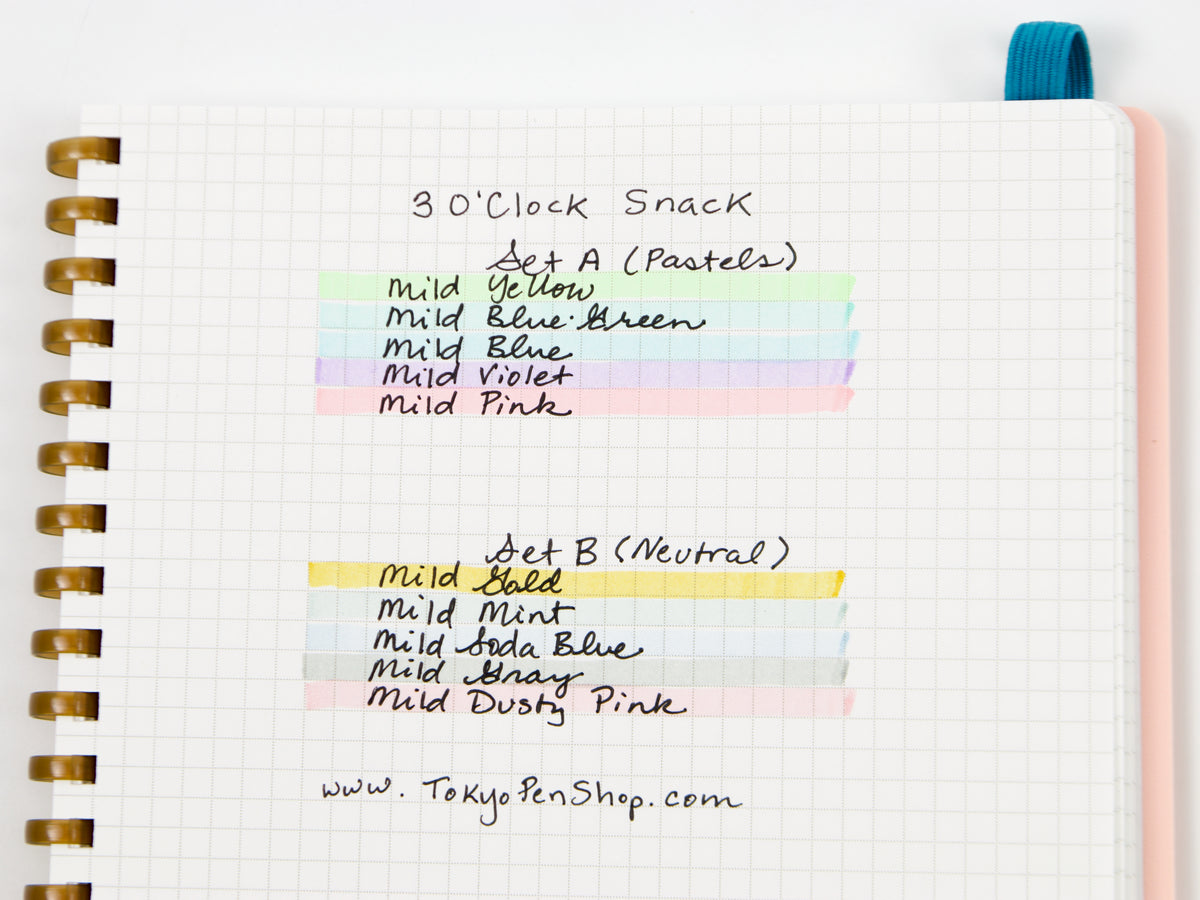 3 O'Clock Snack
Set A (Pastels)
Mild Yellow
Mild Blue·Green
Mild Blue
Mild Violet
Mild Pink
Set B (Neutral)
Mild Gold
Mild Mint
Mild Soda Blue
Mild Gray
Mild Dusty Pink
www.TokyoPenShop.com